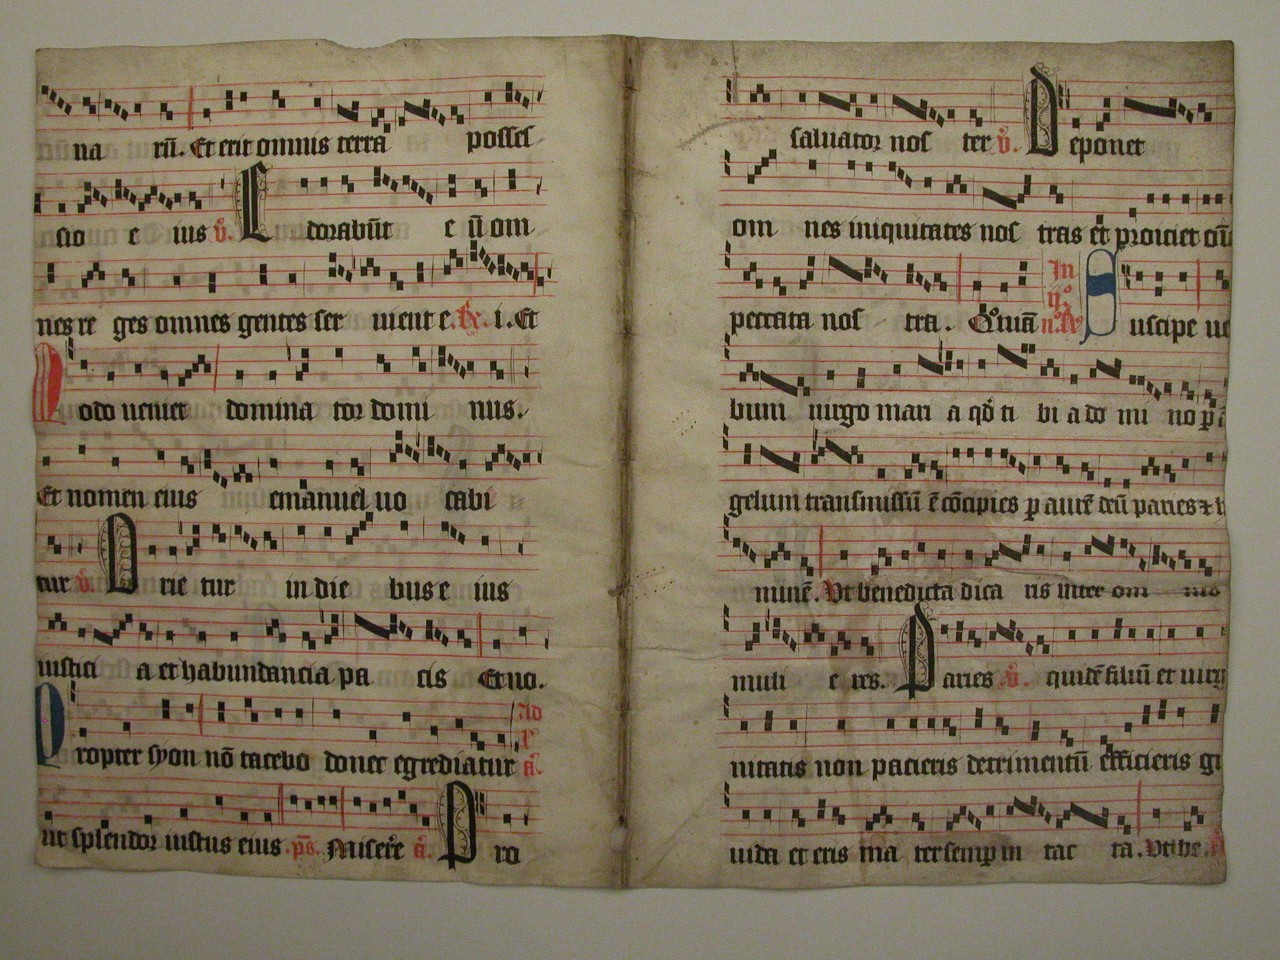 na rū. Et erit omnis terra posses
sio e ius v̊. Adorabūt e ū om
nes re ges omnes gentes ser uient e. R̸. i. Et
Modo ueniet domina tor domi nus.
Et nomen eius emanuel uo cabi
tur v̊. Orie tur in die bus e ius
iustici a et habundancia pa cis Et no.
Propter syon nō tacebo donec egrediatur a.
ut splendor iustus eius. ps. Miserere a. Pro
saluator nos ter v̊. Deponet
om nes iniquitates nos tras et proiciet oū
peccata nos tra. Quia Suscipe ue
bum uirgo mari a qd ti bi a do mi no p
gelum transmissū ē cōcipies p aurē deū paries z
minē. Vt benedicta dica ris inter om nes
muli e res. Paries v̊. quidē filiū et uirg
nitatis non pacieris detrimentū efficieris gr
uida et eris ma ter semp in tac ta. Vt be.